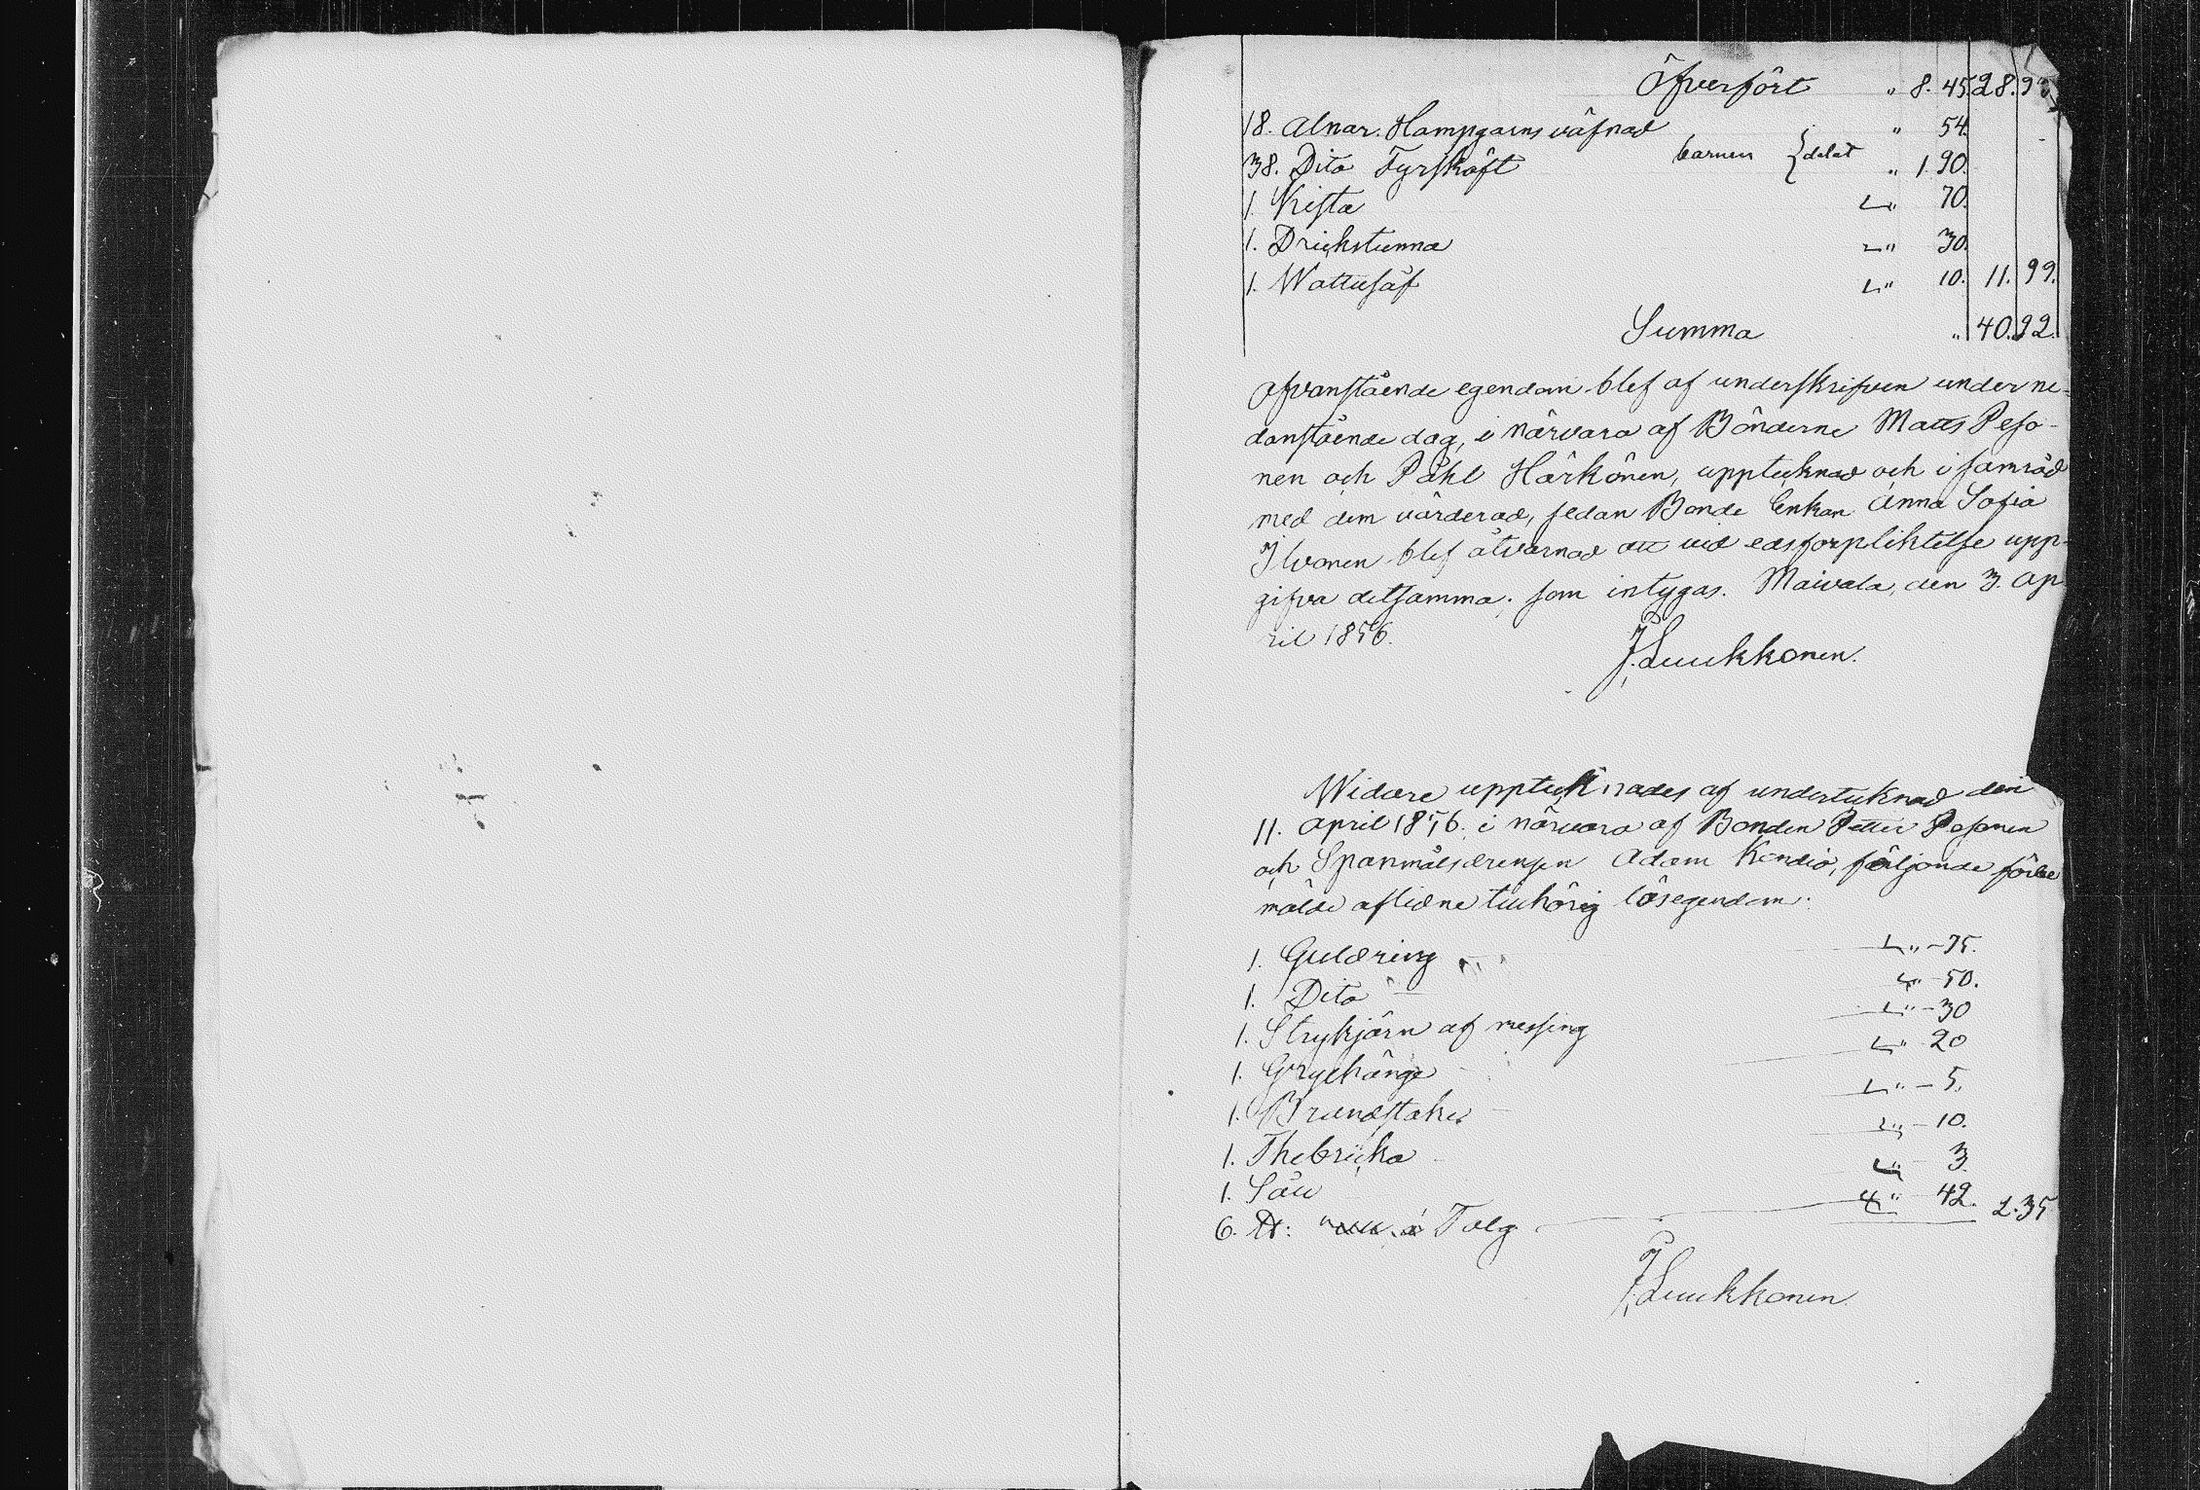 Öfverfört " 8. 45 28. 93
18. Alnar. Hampgarns väfnad " 54.
38. Dito Fyrskäft barnen { delat " 1. 90.
1. Kista " 70.
1. Drickstunna " 30.
1. Wattusåf " 10. 11. 99.
Summa " 40. 92.
Ofvanstående egendom blef af underskrifven under ne-
danstående dag, i närvara af Bönderne Matts Peso-
nen och Påhl Härkönen, upptecknad och i samråd
med dem värderad, sedan Bonde Enkan Anna Sofia
Ilvonen blef åtvarnad att vid edsförpliktelse upp-
gifva detsamma. som intygas. Maivala, den 3. Ap
ril 1856.
J. Luukkonen.
Widare upptecknades af undertecknad den
11. April 1856. i närvara af Bonden Petter Pesonen
och Spanmålsdrengen Adam Kandia, följande förbe
mälde aflidne tillhörig lösegendom.
1. Guldring " - 75.
1. Dito " - 50.
1. Strykjärn af messing " - 30
1. Grythänge " 20
1. Brandstake " - 5.
1. Thebricka " - 10.
1. Såll " 3.
6. ℔: Talg " 42. 2. 35
J. Luukkonen